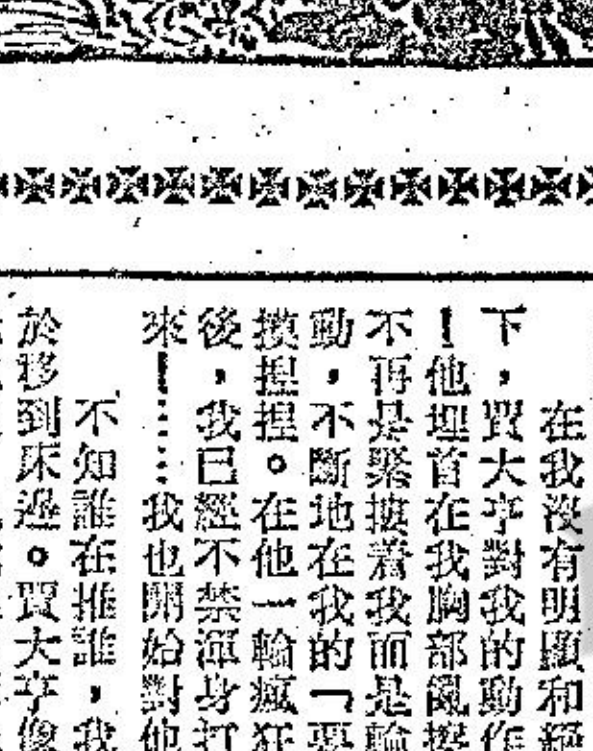 在我沒有明顯和
下，賈大亨對我的動作
！他埋首在我胸部亂
不再是緊摟着我而是輪
動，不斷地在我的「要
摸捏捏。在他一輪瘋狂
後，我已經不禁渾身打
來！⋯⋯我也開始對他
不知誰在推誰，我
於移到床邊。賈大亨像